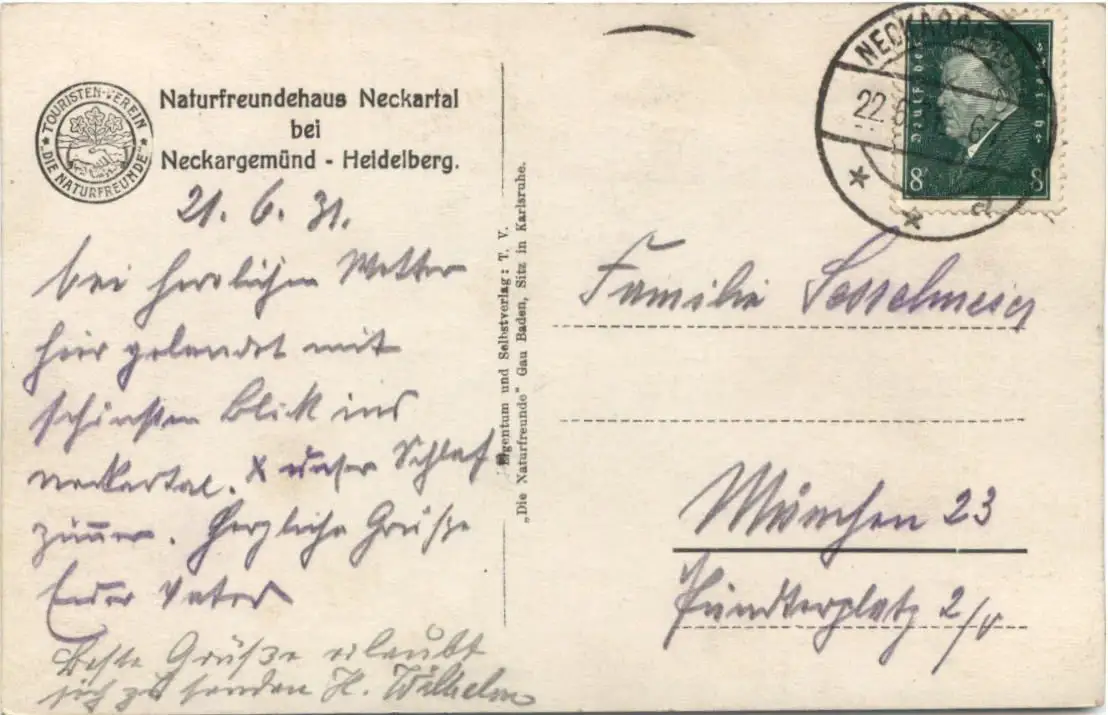 TOURISTEN-VEREIN
"DIE NATURFREUNDE"
Naturfreundehaus Neckartal
bei
Neckargemünd - Heidelberg.
21. 6. 31.
bei herrlichem Wetter
hier gelandet mit
schönsten Blick ins
Neckartal. X unser Schlaf
zimmer. Herzliche Grüße
Euer Vater
Beste Grüße erlaubt
sich zu senden H. Wilhelm
Eigentum und Selbstverlag: T. V.
„Die Naturfreunde" Gau Baden, Sitz in Karlsruhe.
22.6.
8 8
Familie Sesselmeier
München 23